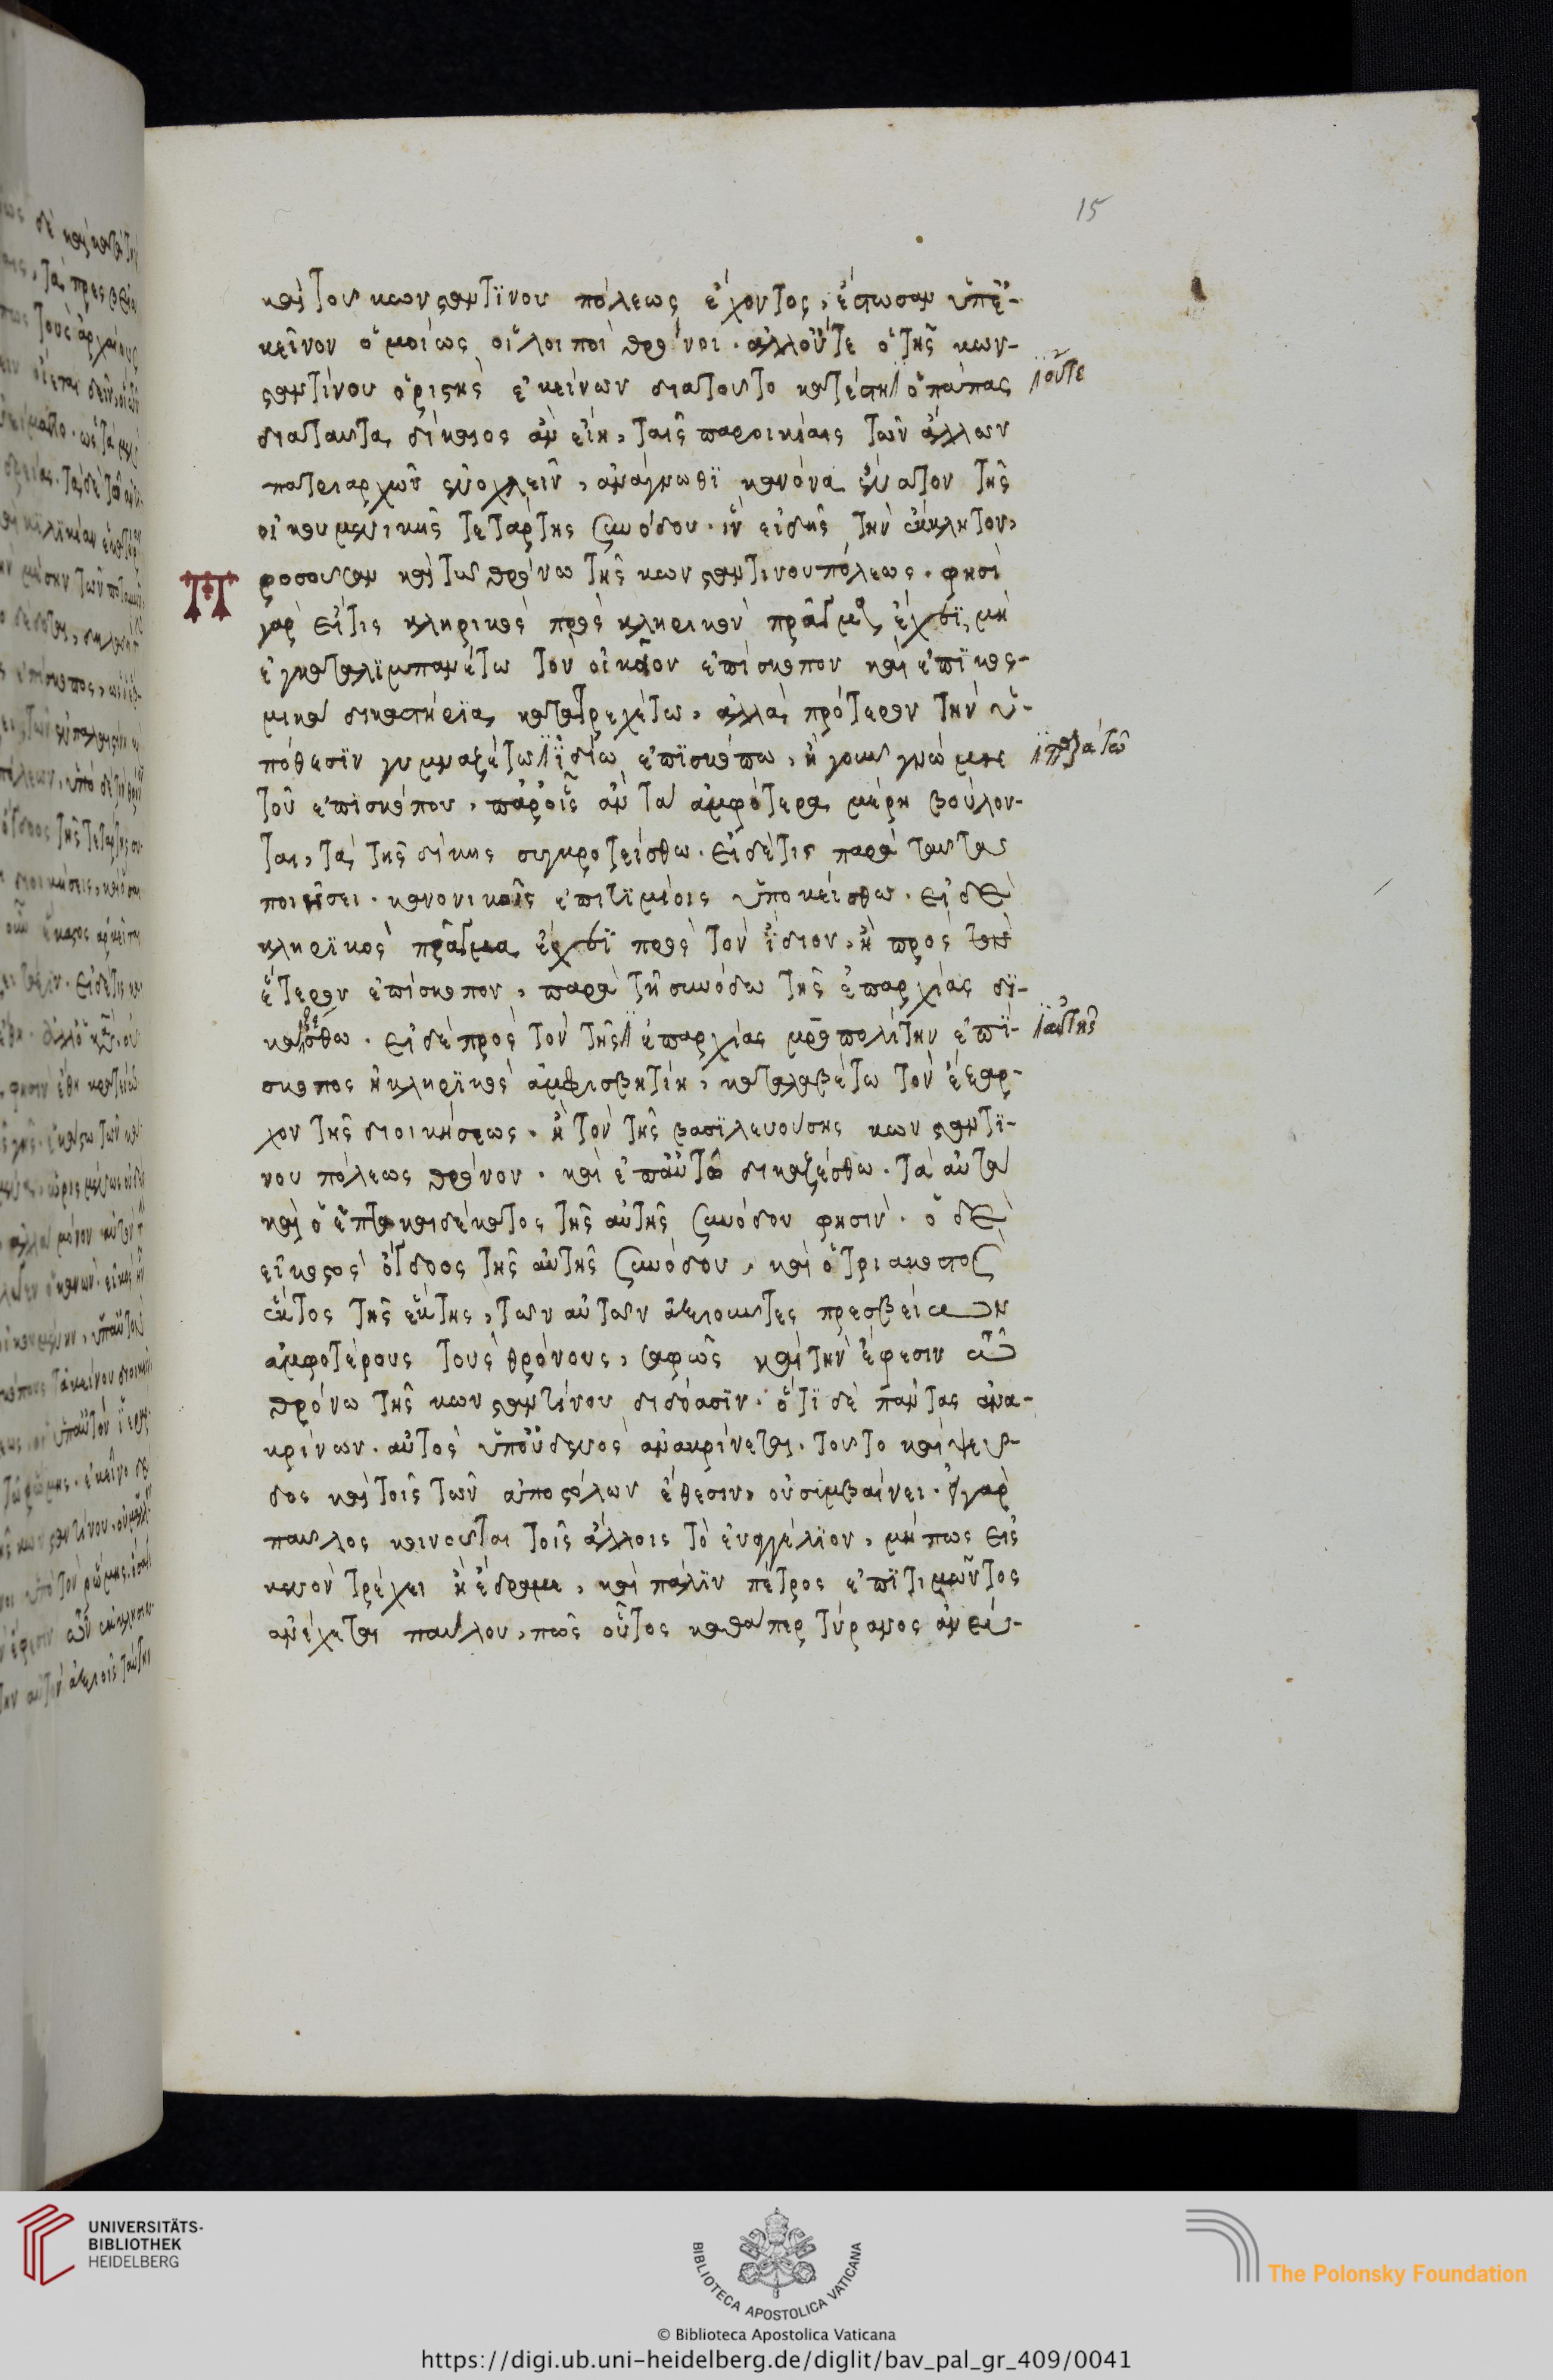 15
καὶ τοῦ κωνσταντϊνου πόλεως ἔχοντος, ἔστωσαν ὑπ' ἐ-
κεῖνον ὁμοίως οἱ λοιποὶ θρόνοι. ἀλλ' οὔτε ὁ τῆς κων-
σταντίνου ὁριστὴς ἐκείνων διατοῦτο κατέστη// ὁ πάπας //οὔτε
διαταῦτα, δίκαιος ἂν εἴη, ταῖς παροικίαις τῶν ἄλλων
πατριαρχῶν ἐνοχλεῖν, ἀνάγνωθϊ κανόνα ἔνατον τῆς
οἰκουμενικῆς τετάρτης συνόδου. ἵν' εἰδῇς τὴν ἔκκλητον,
Προσοῦσαν καὶ τῶ θρόνω τῆς κωνσταντινουπόλεως. φησὶ
γὰρ εἴτις κληρικὸς πρὸς κληρικὸν πρᾶγμα ἔχει, μὴ
ἐγκαταλϊμπανέτω τὸν οἰκεῖον ἐπίσκοπον καὶ ἐπϊ κοσ-
μικὰ δικαστήρϊα, κατατρεχέτω, ἀλλὰ, πρότερον τὴν ὑ-
πόθεσϊν γυμναζέτω// ἰδίω, ἐπϊσκόπω, ἤγουν γνώμη //παρὰ τῶ
τοῦ ἐπισκόπου, παρ' οἷς ἂν τὰ ἀμφότερα μέρη βούλον-
ται, τὰ τῆς δίκης συγκροτείσθω. εἰ δέ τις παρὰ ταῦτα
ποιήσει. κανονικοῖς ἐπιτϊμίοις ὑποκείσθω. εἰ δὲ
κληρϊκὸς πρᾶγμα ἔχει πρὸς τὸν ἴδιον, ἢ πρὸς τὸν
ἕτερον ἐπίσκοπον, παρὰ τῆ συνόδω τῆς ἐπαρχίας δϊ-
καζέσθω. εἰ δὲ πρὸς τὸν τῆς// ἐπαρχίας μητροπολίτην ἐπϊ- //αὐτῆς
σκοπος ἢ κληρϊκὸς ἀμφισβητίη, καταλαβέτω τὸν ἔξαρ-
χον τῆς διοικήσεως. ἢ τὸν τῆς βασϊλευούσης κωνσταντϊ-
νου πόλεως θρόνον. καὶ ἐπ' αὐτῶ δικαζέσθω. τὰ αὐτὰ
καὶ ὁ ἑπτακαιδέκατος τῆς αὐτῆς συνόδου φησιν. ὁ δὲ
εἰκοστὸς ὄγδοος τῆς αὐτῆς συνόδου, καὶ ὁ τριακοστὸς
ἕκτος τῆς ἕκτης, τῶν αὐτῶν ἀξιοῦντες πρεσβείων
ἀμφοτέρους τοὺς θρόνους, σαφῶς καὶ τὴν ἔφεσιν τῶ
θρόνω τῆς κωνσταντίνου διδόασϊν. ὅτϊ δὲ πάντας ἀνα-
κρίνων. αὐτὸς ὑπ' οὐδενὸς ἀνακρίνεται. τοῦτο καὶ ψεῦ-
δος καὶ τοῖς τῶν ἀποστόλων ἔθεσιν, οὐ σιμβαίνει. εἰ γὰρ
παῦλος κοινοῦται τοῖς ἄλλοις τὸ ἐυαγγέλϊον, μήπως εἰς
κενὸν τρέχει ἢ ἔδραμε, καὶ πάλϊν πέτρος ἐπϊτιμῶντος
ἀνέχεται παύλου, πῶς οὗτος καθάπερ τύραννος ἀνεύ-
UNIVERSITÄTS-
BIBLIOTHEK
HEIDELBERG
BIBLIOTECA APOSTOLICA VATICANA
The Polonsky Foundation
© Biblioteca Apostolica Vaticana
https://digi.ub.uni-heidelberg.de/diglit/bav_pal_gr_409/0041